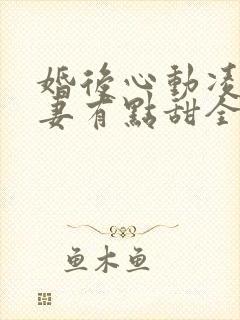 婚後心動凌
妻有點甜全
鱼木鱼